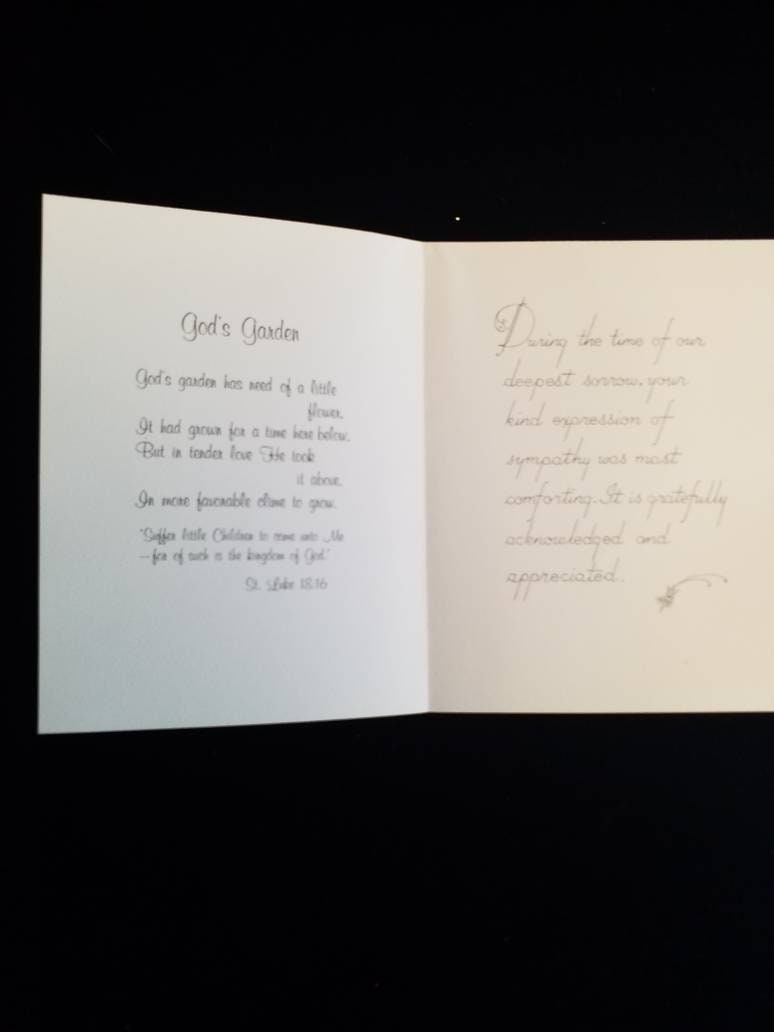 God's Garden
God's garden has need of a little
flower,
It had grown for a time here below.
But in tender love He took
it above,
In more favorable clime to grow.
"Suffer little Children to come unto Me
--for of such is the kingdom of God."
St. Luke 18:16
During the time of our
deepest sorrow, your
kind expression of
sympathy was most
comforting. It is gratefully
acknowledged and
appreciated.